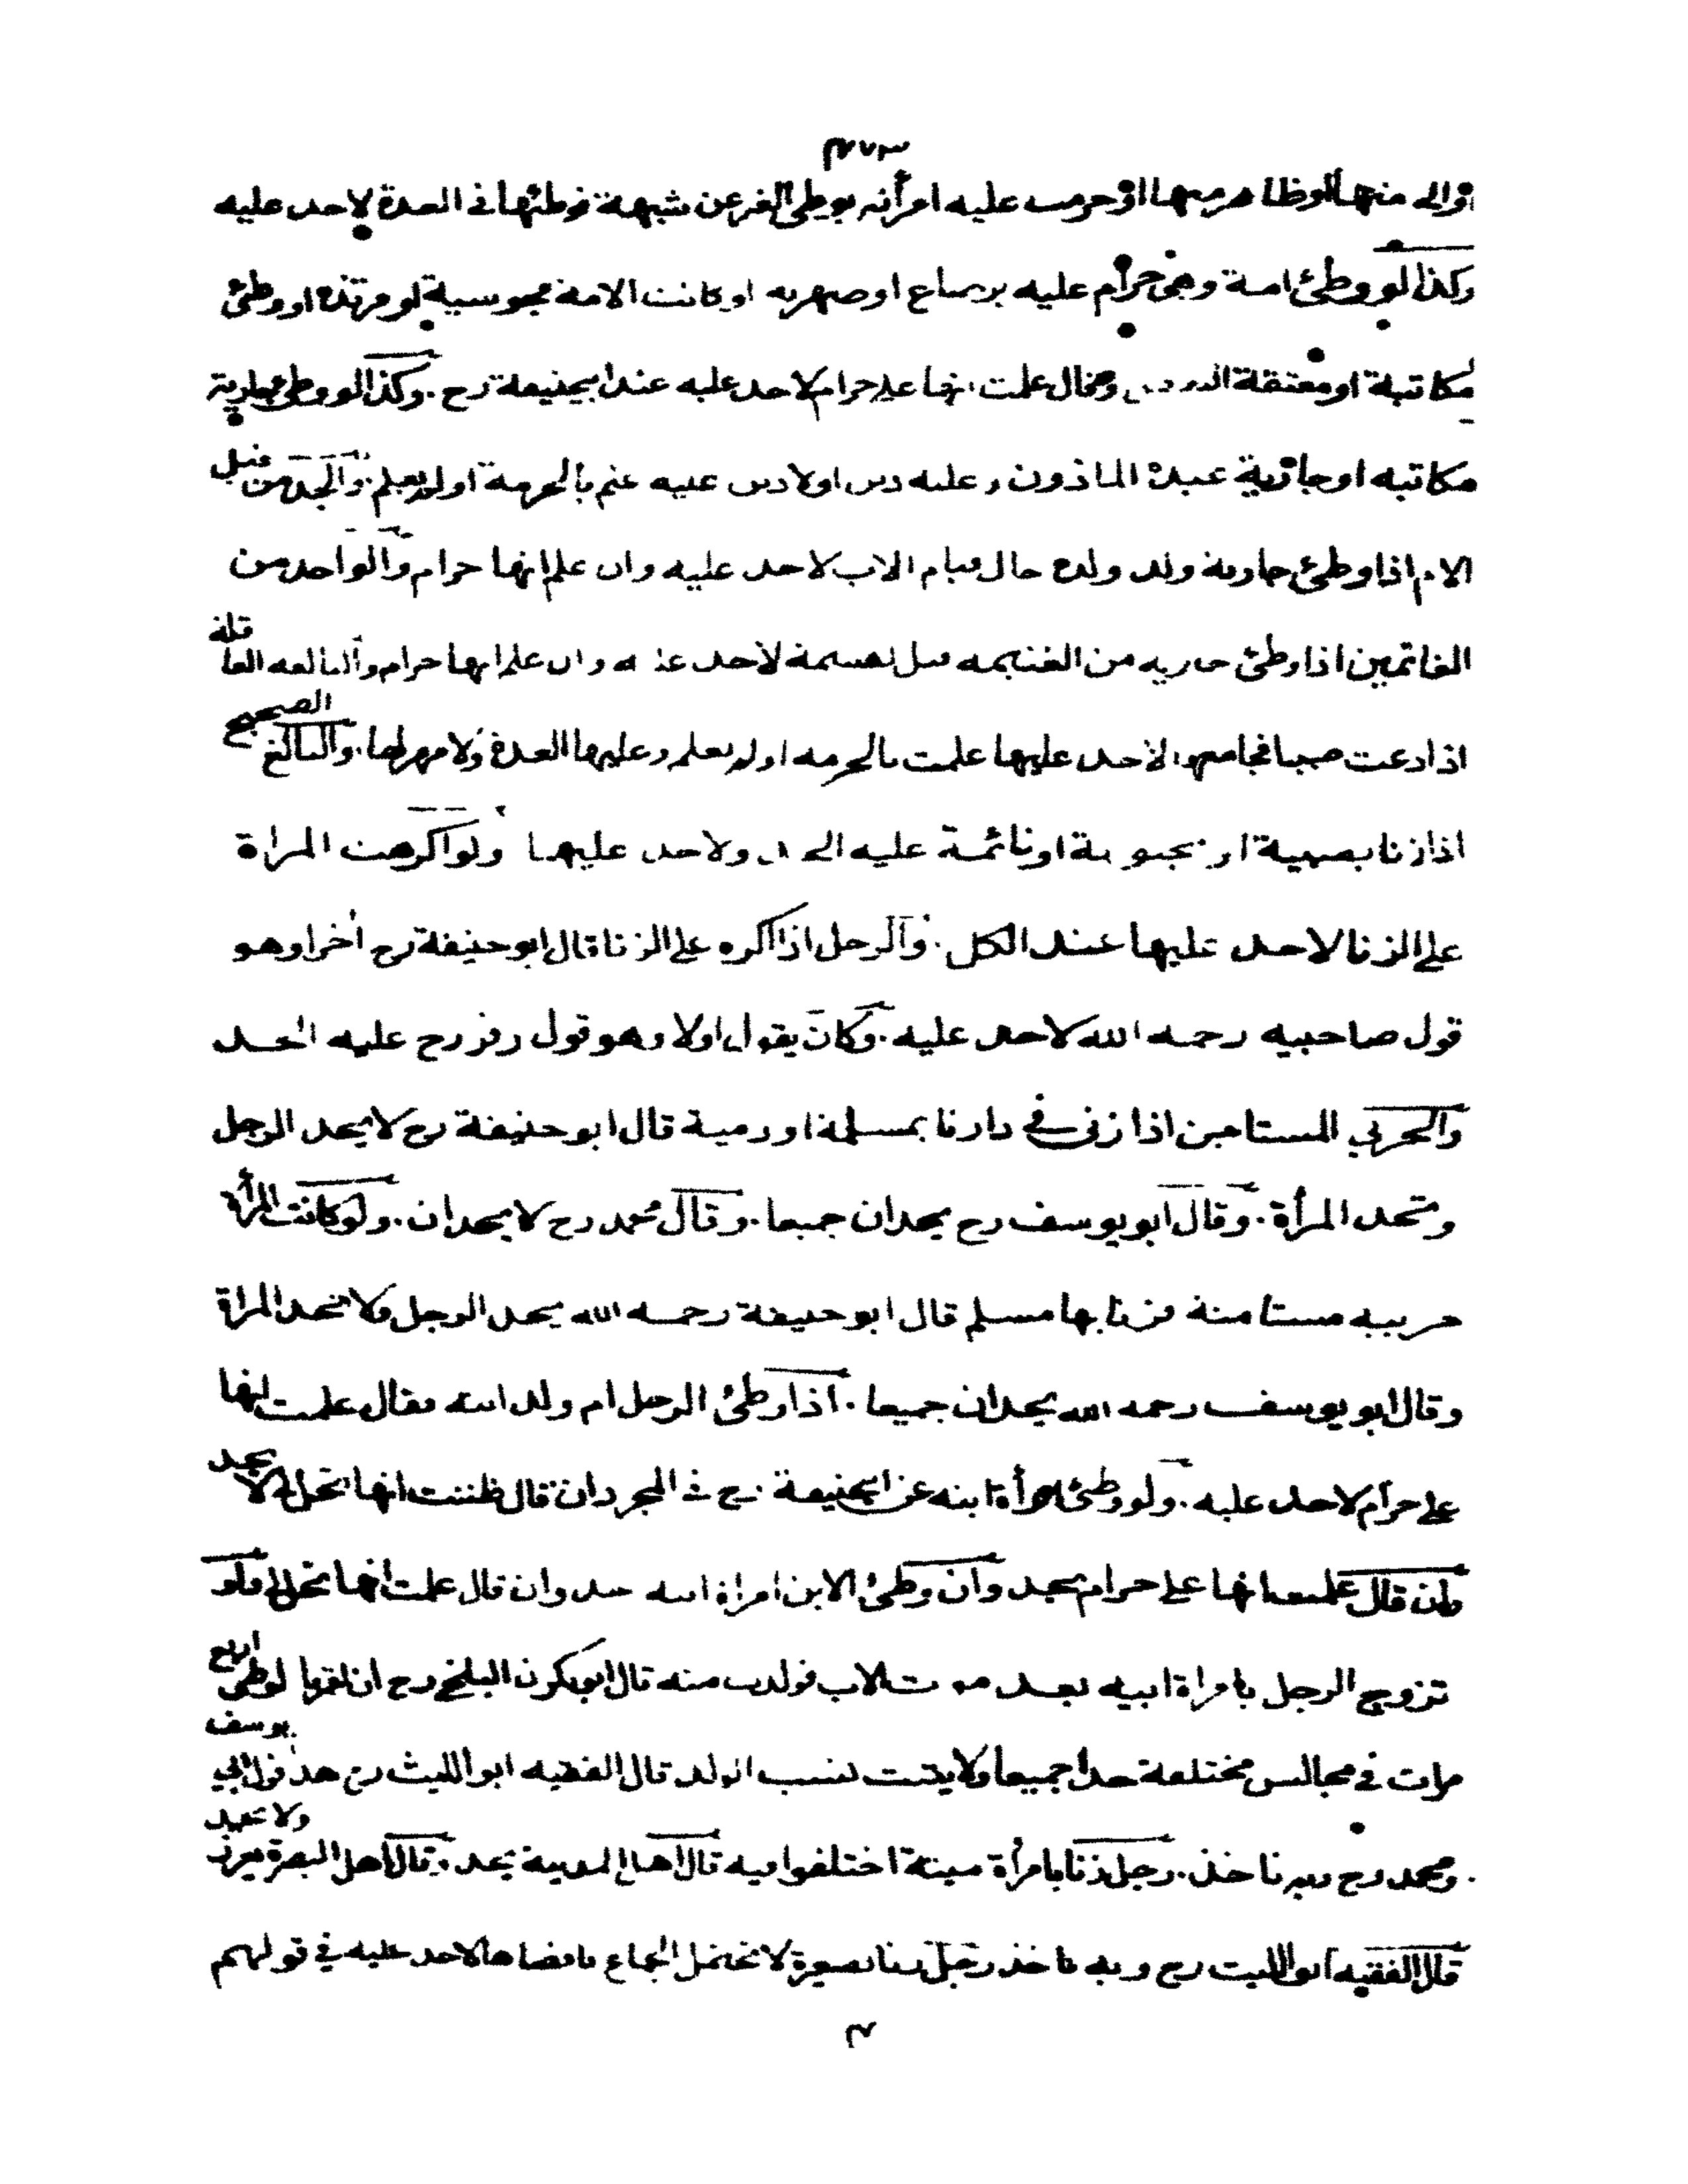 او الى منها او ظاهر منها او حرمت عليه امرأته بوطئ الغير عن شبهة فوطئها فى العدة لاحد عليه
وكذا لو وطئ امة وهى حرام عليه برضاع او صهرية او كانت الامة مجوسية او مرتدة او وطئ
مكاتبة او معتقلة وقال علمت انها على حرام لاحد عليه عند ابيحنيفة رح . وكذا لو وطئ جارية
مكاتبه او جارية عبده الماذون وعليه دين اولادين عليه علم بالحرمة اولم يعلم . والجد من قبل
الام اذا وطئ جارية ولد ولده حال قيام الاب لاحد عليه وان علم انها حرام والواحد من
الغانمين اذا وطئ جارية من الغنيمة قبل القسمة لاحد عليه وان علم انها حرام والبالغة العاقلة
اذا دعت صبيا فجامعها لاحد عليها علمت بالحرمة اولم يعلم وعليها العدة ولا مهر لها . والبالغ الصحيح
اذا زنا بصبية او مجنونة او نائمة عليه الحد ولاحد عليها ولو اكرهت المراة
على الزنا لاحد عليها عند الكل . والرجل اذا اكره على الزنا قال ابو حنيفة رح اخرا وهو
قول صاحبيه رحمه الله لاحد عليه . وكان يقول اولا وهو قول زفر رح عليه الحد
والحربي المستامن اذا زنى في دارنا بمسلمة او ذمية قال ابو حنيفة رح لا يحد الرجل
وتحد المرأة . وقال ابويوسف رح يحدان جميعا . وقال محمد رح لا يحدان . ولو كانت المرأة
حربية مستامنة فزنا بها مسلم قال ابو حنيفة رحمه الله يحد الرجل ولا تحد المراة
وقال ابو يوسف رحمه الله يحدان جميعا . اذا وطئ الرجل ام ولد ابنه فقال علمت انها
على حرام لاحد عليه . ولو وطئ امرأة ابنه عن ابيحنيفة رح فى المجرد ان قال ظننت انها تحل لي لا يحد
وان قال علمت انها على حرام يحد وان وطئ الابن امراة ابيه حد وان قال علمت انها تحل لي ولو
تزوج الرجل بامراة ابيه بعد موت الاب فولدت منه قال ابوبكر البلخي رح ان اقرا لوطئ اربع
مرات في مجالس مختلفة حدا جميعا ولا يثبت نسب الولد قال الفقيه ابو الليث رح هذا قول ابي يوسف
ومحمد رح وبه ناخذ . رجل زنا بامرأة ميتة اختلفوا فيه قال اهل المدينة يحد . وقال اهل البصرة يعزر ولا يحد
قال الفقيه ابو الليث رح وبه ناخذ رجل زنا بصغيرة لا تحتمل الجماع فافضاها لاحد عليه في قولهم